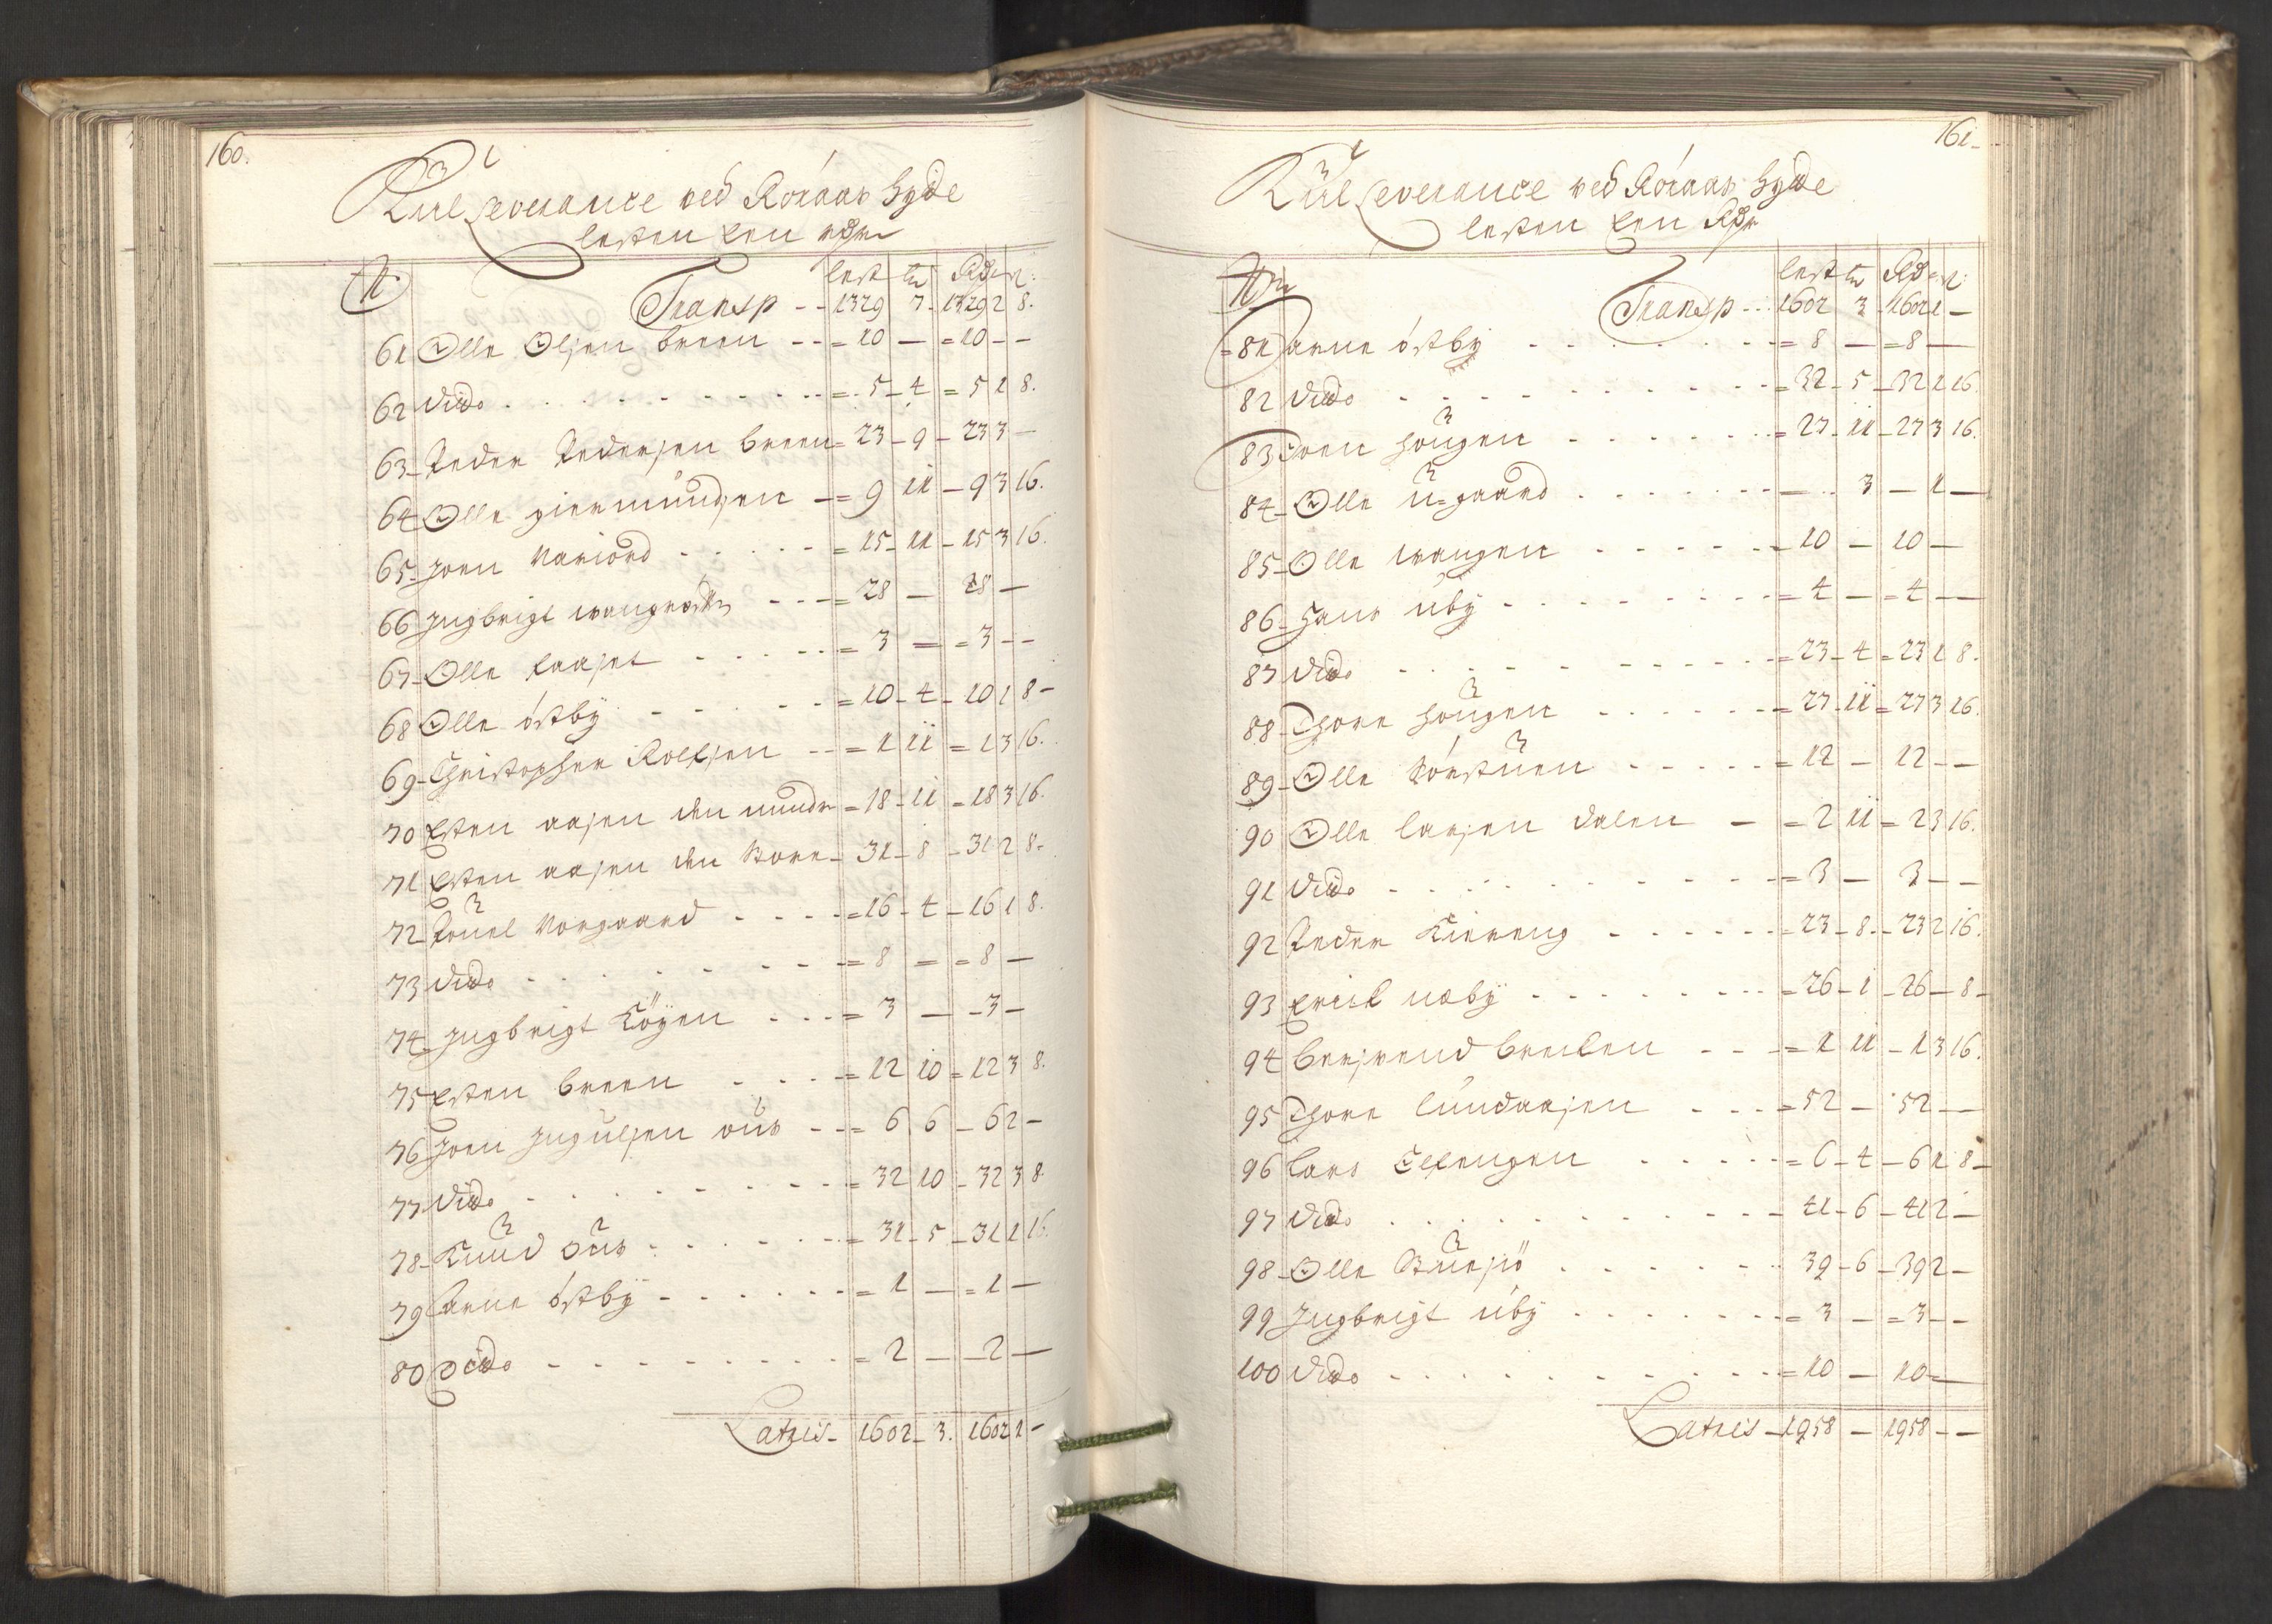 160.
Kul Leverance ved Röraas Hyde
lesten Een rdr
N lest tr Rdr
Transp -- 1329 7 - 1329 2 8.
61 Olle Olsen breen -- = 10 — = 10 - -
62 dido . . . . = 5 - 4 = 5 1 8.
63 - Peder Pedersen breen = 23 - 9 - 23 3 —
64 Olle giermundsen - = 9 11 - 9 3 16.
65 - Joen Variord - - - = 15 - 11 - 15 3 16.
66 Ingbrigt - - - = 28 — 28 —
67 - Olle aasset - - - = 3 — = 3 - -
68 Olle östby - - - = 10 - 4 - 10 1 8 -
69 - Christopher Rolfsen - - = 1 11 = 1 3 16.
70 Esten aasen den mindr = 18 - 11 = 18 3 16.
71 Esten aasen den store - 31 - 8 - 31 2 8 -
72 Pouel Morgaard - - - = 16 - 4 - 16 1 8.
73 dido - - - = 8 — = 8 —
74 Ingbrigt Köyen - - - = 3 — - 3 -
75 Esten breen - - - = 12 10 = 12 3 8.
76 Joen Ingulsen ous - - = 6 6 - 6 2 -
77 dido - - - = 32 10 - 32 3 8
78 - Knud ous - - - = 31 - 5 - 31 1 16.
79 arne östby - - - = 1 — = 1 —
80 dido - - - = 2 — - 2 —
Latris - 1602 - 3. 1602 1 -
161 -
Kul Leverance ved Röraas Hyde
lesten Een Rdr
Nr lest tr Rdr
Transp - - 1602 3 - 1602 1 —
= 81 arne östby - - - = 8 — = 8 —
82 dido - - - = 32 - 5 - 32 1 16.
83 Joen hougen - - - = 27 - 11 - 27 3 16.
84 - Olle u=gaard - - - 3 — 1 —
85 - Olle wangen - - - 10 — 10 —
86 - Hans uby - - - = 4 — = 4 —
87 dido - - - = 23 - 4 = 23 1 8.
88 - Thore hougen - - - = 27 - 11 = 27 3 16.
89 - Olle Korstuen - - - = 12 — 12 - -
90 Olle larsen dalen — = 2 11 = 2 3 16.
91 dido - - - = 3 — 3 - -
92 Peder Kiereng - - - = 23 - 8 - 23 2 16.
93 Erich noeby - - - = 26 - 1 - 26 - 8 -
94 bersvend brecken - - - = 1 11 - 1 3 16.
95 Thore lundaasen - - - = 52 — 52 —
96 lars Elfengen - - - = 6 - 4 - 6 1 8 -
97 dido - - - 41 - 6 - 41 2 —
98 - Olle stuesiö - - - 39 - 6 - 39 2 -
99 Ingbrigt uby - - - = 3 — = 3 - -
100 dido - - - = 10 — 10 —
Latris - 1958 — 1958 - -